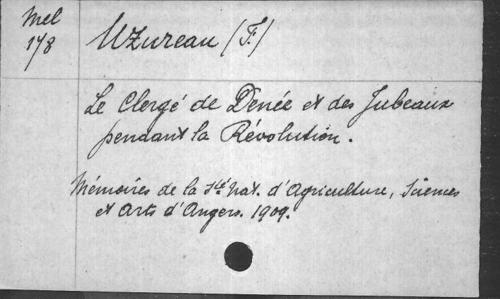 Mel
178
Uzureau (F.)
Le Clergé de Denée et des Jubeaux
pendant la Révolution.
Mémoires de la Sté Nat. d'Agriculture, Sciences
et Arts d'Angers. 1909.